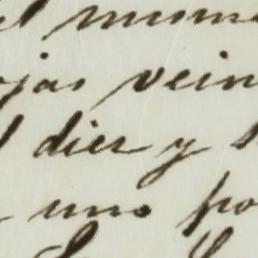 el mism
ojas vein
dier y s
uno po